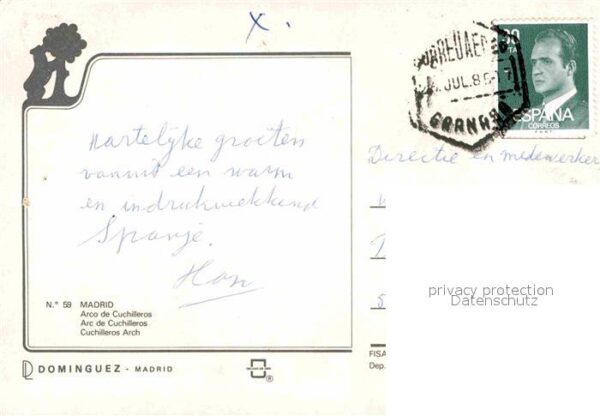 x.
Hartelijke groeten
vanuit een warm
en indrukwekkend
Spanje.
Han
N.° 59 MADRID
Arco de Cuchilleros
Arc de Cuchilleros
Cuchilleros Arch
DOMINGUEZ - MADRID
®
JUL.86 17
GRANADA
ESPAÑA
CORREOS
Directie en medewerker
privacy protection
Datenschutz
FISA
Dep.